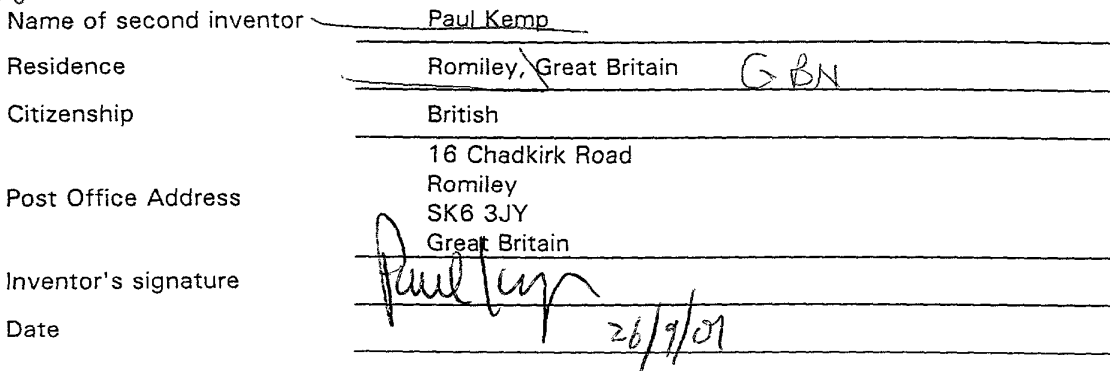 Name of second inventor Paul Kemp
Residence Romiley, Great Britain GBN
Citizenship British
16 Chadkirk Road
Post Office Address Romiley
SK6 3JY
Great Britain
Inventor's signature Paul Kemp
Date 26/9/01